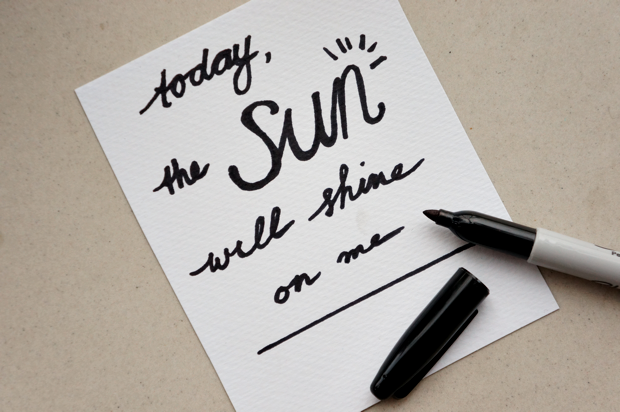 today,
the Sun
will shine
on me